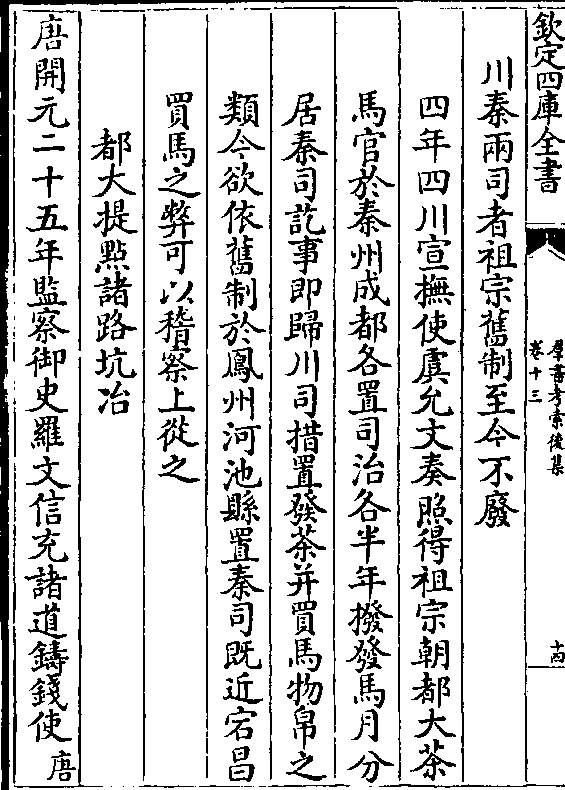 欽定四庫全書
羣書考索後集
卷十三
十四
川秦兩司者祖宗舊制至今不廢
四年四川宣撫使虞允文奏照得祖宗朝都大茶
馬官於秦州成都各置司治各半年撥發馬月分
居秦司訖事即歸川司措置發茶并買馬物帛之
類今欲依舊制於鳳州河池縣置秦司既近宕昌
買馬之弊可以稽察上從之
都大提點諸路坑冶
唐開元二十五年監察御史羅文信充諸道鑄錢使唐